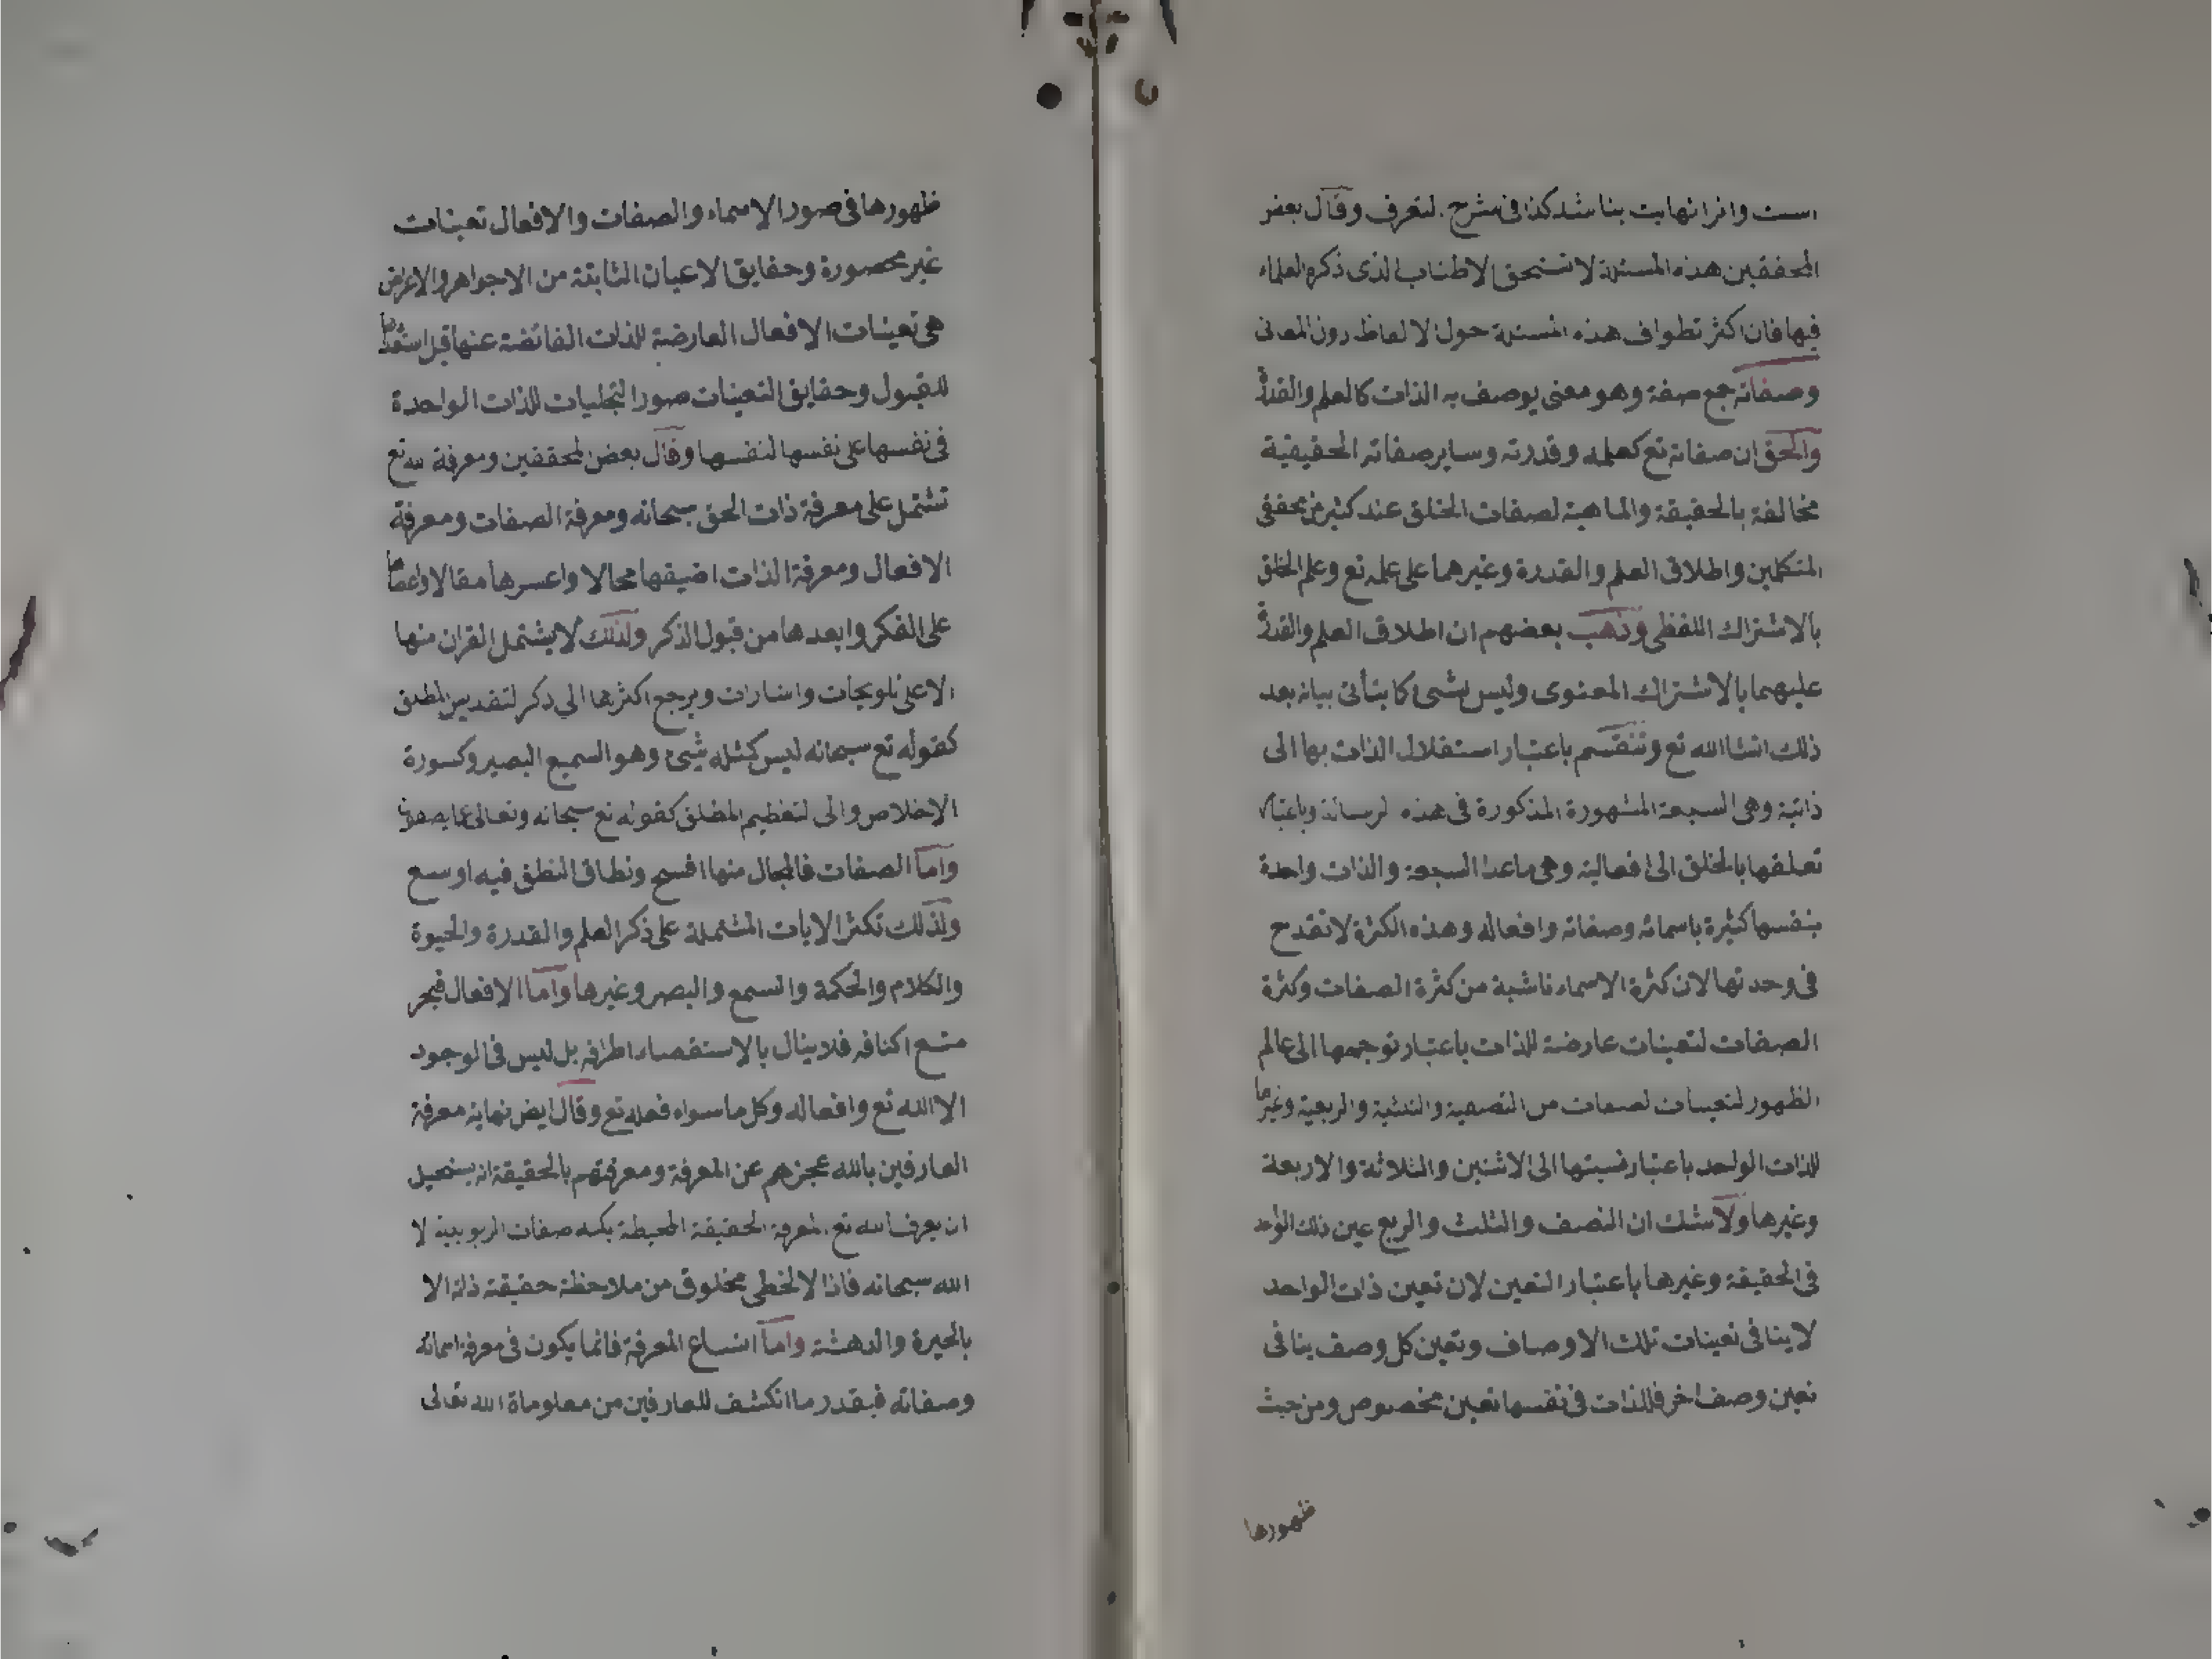 است وانرا نهايت بناشد كذا فى شرح التعرف وقال بعض
المحققين هذه المسئلة لا تستحق الاطناب الذى ذكره العلماء
فيها فان اكثر تطواف هذه المسئلة حول الالفاظ دون المعانى
وصفاته جمع صفة وهو معنى يوصف به الذات كالعلم والقدرة
والحق ان صفاته تع كعلمه وقدرته وساير صفاته الحقيقية
مخالفة بالحقيقة والماهية لصفات الخلق عند كثير من محققى
المتكلمين واطلاق العلم والقدرة وغيرهما على علمه تع وعلم الخلق
بالاشتراك اللفظى وذهب بعضهم ان اطلاق العلم والقدرة
عليهما بالاشتراك المعنوى وليس بشئ كا يتأتى بيانه بعد
ذلك انشاالله تع وتنقسم باعتبار استقلال الذات بها الى
ذاتية وهى السبعة المشهورة المذكورة فى هذه الرسالة وباعتبار
تعلقها بالخلق الى افعالية وهى ماعدا السبعة والذات واحدة
بنفسها كثيرة باسمائه وصفاته وافعاله وهذه الكثرة لا تقدح
فى وحدتها لان كثرة الاسماء ناشية من كثرة الصفات وكثرة
الصفات لتعينات عارضة للذات باعتبار توجهها الى عالم
الظهور لتعينات لصفات من النصفية والثلثية والربعية وغيرها
للذات الواحد باعتبار نسبتها الى الاثنين والثلاثة والاربعة
وغيرها ولا شك ان النصف والثلث والربع عين ذلك الواحد
فى الحقيقة وغيرها باعتبار التعين لان تعين ذات الواحد
لا ينافى تعينات تلك الاوصاف وتعين كل وصف ينافى
تعين وصف اخر فللذات فى نفسها تعين مخصوص ومن حيث
ظهورها
ظهورها فى صور الاسماء والصفات والافعال تعينات
غير محصورة وحقايق الاعيان الثابتة من الاجواهر والاعراض
هى تعينات الافعال العارضة للذات الفائضة عنها قبل استعدادها
للقبول وحقايق التعينات صور التجليات للذات الواحدة
فى نفسها على نفسها لنفسها وقال بعض المحققين ومعرفة الله تع
تشتمل على معرفة ذات الحق سبحانه ومعرفة الصفات ومعرفة
الافعال ومعرفة الذات اضيقها مجالا واعسرها مقالا واعصاها
على الفكر وابعدها من قبول الذكر ولذلك لا يشتمل القران منها
الاعلى تلويحات واشارات ويرجع اكثرها الي ذكر لتقديس المطلق
كقوله تع سبحانه ليس كمثله شئ وهو السميع البصير وكسورة
الاخلاص والى لتعظيم المطلق كقوله تع سبحانه وتعالى عما يصفون
واما الصفات فالمجال منها افسح ونطاق النطق فيه اوسع
ولذلك تكثر الايات المشتملة على ذكر العلم والقدرة والحيوة
والكلام والحكمة والسمع والبصر وغيرها واما الافعال فبحر
متسع اكنافه فلا ينال بالاستقصاء اطرافه بل ليس فى الوجود
الا الله تع وافعاله وكل ما سواه فعله تع وقال ايض نهاية معرفة
العارفين بالله عجزهم عن المعرفة ومعرفتهم بالحقيقة انه يستحيل
ان يعرف الله تع المعرفة الحقيقة المحيطة بكنه صفات الربوبية لا
الله سبحانه فاذا لا لخطى مخلوق من ملاحظة حقيقة ذاته الا
بالحيرة والدهشة واما اتساع المعرفة فانما يكون فى معرفة اسمائه
وصفاته فبقدر ما انكشف للعارفين من معلوماة الله تعالى